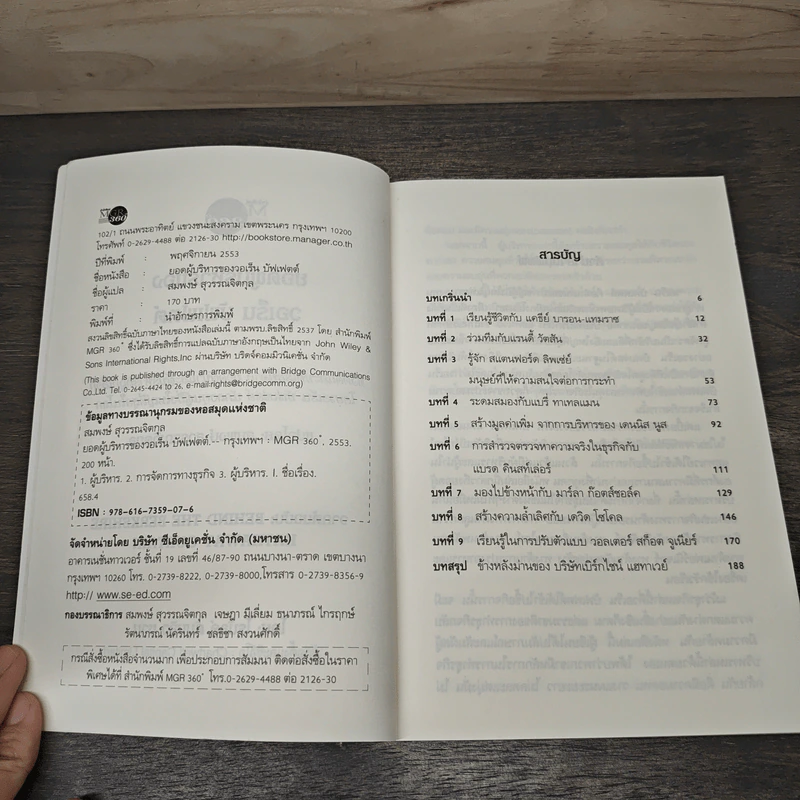 360
102/1 ถนนพระอาทิตย์ แขวงชนะสงคราม เขตพระนคร กรุงเทพฯ 10200
โทรศัพท์ 0-2629-4488 ต่อ 2126-30 http://bookstore.manager.co.th
ปีที่พิมพ์ : พฤศจิกายน 2553
ชื่อหนังสือ : ยอดผู้บริหารของวอเร็น บัฟเฟตต์
ชื่อผู้แปล : สมพงษ์ สุวรรณจิตกุล
ราคา : 170 บาท
พิมพ์ที่ : นำอักษรการพิมพ์
สงวนลิขสิทธิ์ฉบับภาษาไทยของหนังสือเล่มนี้ ตามพรบ.ลิขสิทธิ์ 2537 โดย สำนักพิมพ์
MGR 360° ซึ่งได้รับลิขสิทธิ์การแปลฉบับภาษาอังกฤษเป็นไทยจาก John Wiley &
Sons International Rights,Inc ผ่านบริษัท บริดจ์คอมมิวนิเคชั่น จำกัด
(This book is published through an arrangement with Bridge Communications
Co.,Ltd. Tel. 0-2645-4424 to 26, e-mail:rights@bridgecomm.org).
ข้อมูลทางบรรณานุกรมของหอสมุดแห่งชาติ
สมพงษ์ สุวรรณจิตกุล
ยอดผู้บริหารของวอเร็น บัฟเฟตต์.-- กรุงเทพฯ : MGR 360°, 2553.
200 หน้า.
1. ผู้บริหาร. 2. การจัดการทางธุรกิจ 3. ผู้บริหาร. I. ชื่อเรื่อง.
658.4
ISBN : 978-616-7359-07-6
จัดจำหน่ายโดย บริษัท ซีเอ็ดยูเคชั่น จำกัด (มหาชน)
อาคารเนชั่นทาวเวอร์ ชั้นที่ 19 เลขที่ 46/87-90 ถนนบางนา-ตราด เขตบางนา
กรุงเทพฯ 10260 โทร. 0-2739-8222, 0-2739-8000,โทรสาร 0-2739-8356-9
http:// www.se-ed.com
กองบรรณาธิการ สมพงษ์ สุวรรณจิตกุล เจษฎา มีเลี่ยม ธนาภรณ์ ไกรฤกษ์
รัตนาภรณ์ นัครินทร์ ชลธิชา สงวนศักดิ์
กรณีสั่งซื้อหนังสือจำนวนมาก เพื่อประกอบการสัมมนา ติดต่อสั่งซื้อในราคา
พิเศษได้ที่ สำนักพิมพ์ MGR 360° โทร.0-2629-4488 ต่อ 2126-30
สารบัญ
บทเกริ่นนำ 6
บทที่ 1 เรียนรู้ชีวิตกับ แคธีย์ บารอน-แทมราซ 12
บทที่ 2 ร่วมทีมกับแรนดี้ วัตสัน 32
บทที่ 3 รู้จัก สแตนฟอร์ด ลิพเซย์
มนุษย์ที่ให้ความสนใจต่อการกระทำ 53
บทที่ 4 ระดมสมองกับแบรี่ ทาเทลแมน 73
บทที่ 5 สร้างมูลค่าเพิ่ม จากการบริหารของ เดนนิส นูส 92
บทที่ 6 การสำรวจตรวจหาความจริงในธุรกิจกับ
แบรด คินสท์เล่อร์ 111
บทที่ 7 มองไปข้างหน้ากับ มาร์ลา ก๊อตส์ชอล์ค 129
บทที่ 8 สร้างความล้ำเลิศกับ เดวิด โซโคล 146
บทที่ 9 เรียนรู้ในการปรับตัวแบบ วอลเตอร์ สก๊อต จูเนียร์ 170
บทสรุป ข้างหลังม่านของ บริษัทเบิร์กไชน์ แฮทาเวย์ 188